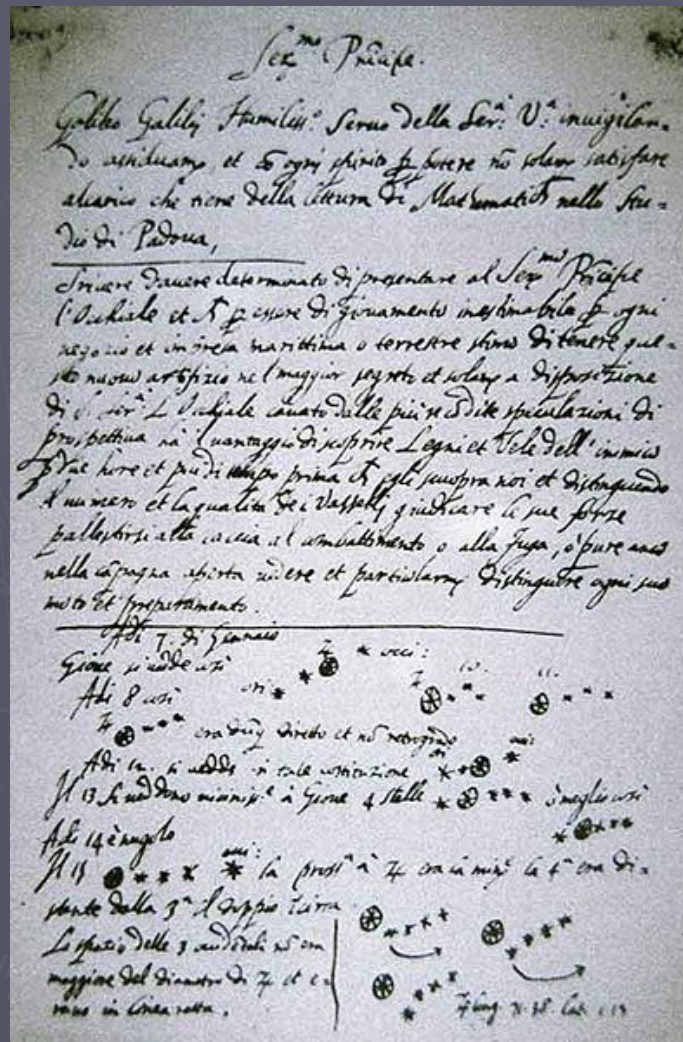 Ser.mo Prĩcipe.
Galileo Galilej Humiliss.o Seruo della Ser.a V.a inuigilan=
do assiduam.e, et cõ ogni spirito p potere nõ solam.e satisfare
alcarico che tiene della lettura di Mathematich nello Stu=
dio di Padoua,
Scriuere dauere determinato di presentare al Ser.mo Prĩcipe
l'Occhiale et p essere di giouamento inestimabile p ogni
negozio et impresa marittima o terrestre stimo di tenere que=
sto nuouo artifizio nel maggior segreto et solam.e a disposizione
di S. Ser.a L'Occhiale cauato dalle più recõdite speculazioni di
prospettiua hà il uantaggio di scoprire Legni et Vele dell' inimico
p due hore et più di tempo prima ch egli scuopra noi et distinguendo
il numero et la qualità de i Vasselli giudicare le sue forze
pallestirsi alla caccia al combattimento o alla fuga, ò pure anco
nella cãpagna aperta uedere et particularm.e distinguere ogni suo
moto et preparamento.
Adi 7. di Gennaio
Gione si uede così
occi:
Adi 8 così
ori:
10. 11.
♃ era dũq diretto et nõ retrogrado
Adi 12. si uedde in tale costituzione
Il 13 si ueddono uicinis.e à Gioue 4 stelle ò meglio così
Adi 14 è nugolo
Il 15 la pross.a à ♃ era la min.e la 4.a era di=
stante dalla 3.a il doppio circa
Lo spatio delle 3 occidentali nõ era
maggiore del diametro di ♃ et e=
rano in linea retta.
♃ long. 71.38. Lat. 1.13